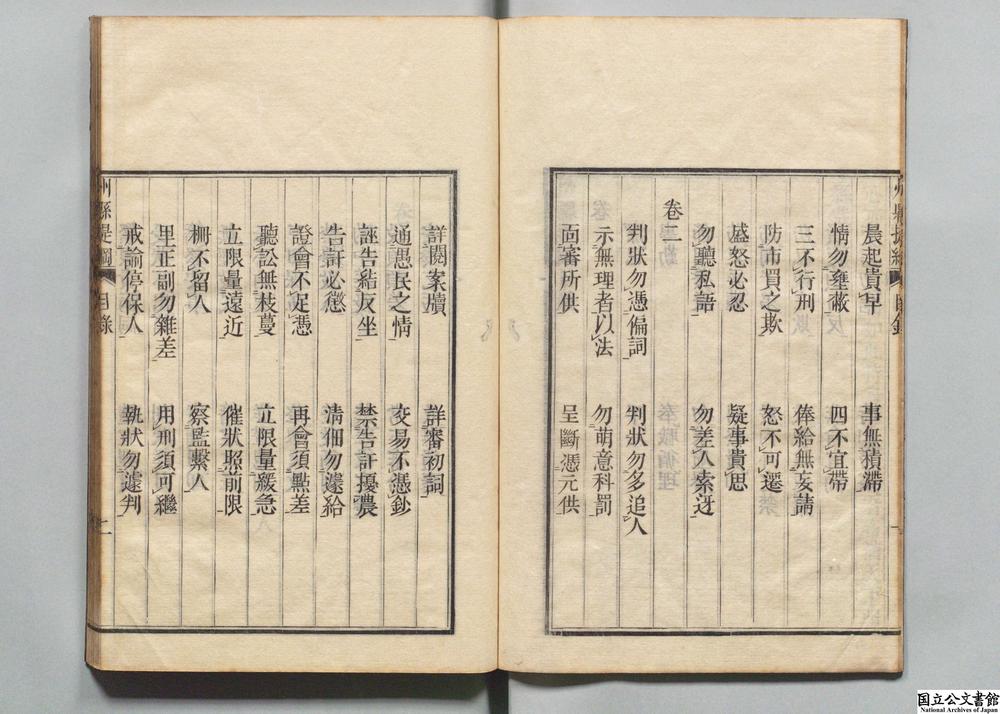 晨起貴早　事無積滯
情勿壅蔽　四不宜帶
三不行刑　俸給無妄請
防市買之欺　怒不可遷
盛怒必忍　疑事貴思
勿聽私語　勿差人索迓
卷二
判狀勿憑偏詞　判狀勿多追人
示無理者以法　勿萌意科罰
面審所供　呈斷憑元供
詳閱案牘　詳審初詞
通愚民之情　交易不憑鈔
誣告結反坐　禁告訐擾農
告訐必懲　請佃勿遽給
證會不足憑　再會須點差
聽訟無枝蔓　立限量緩急
立限量遠近　催狀照前限
柵不留人　察監繫人
里正副勿雜差　用刑須可繼
戒諭停保人　執狀勿遽判
州縣提綱　目錄　二
国立公文書館
National Archives of Japan